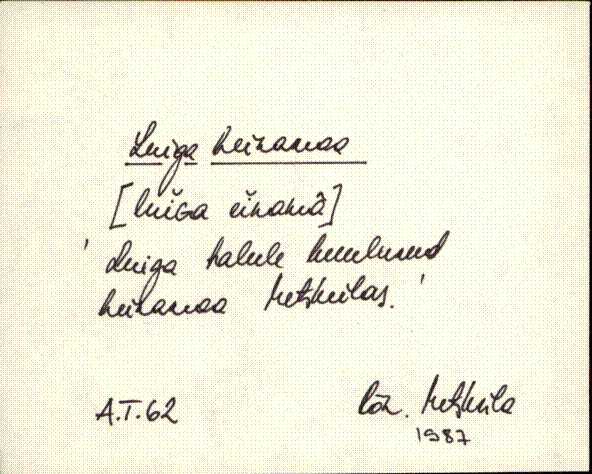 Luiga heinamaa
[luiGa einamā]
'Luiga talule kuulunud
heinamaa Metskülas.'
A.T. 62
Metsküla
1987